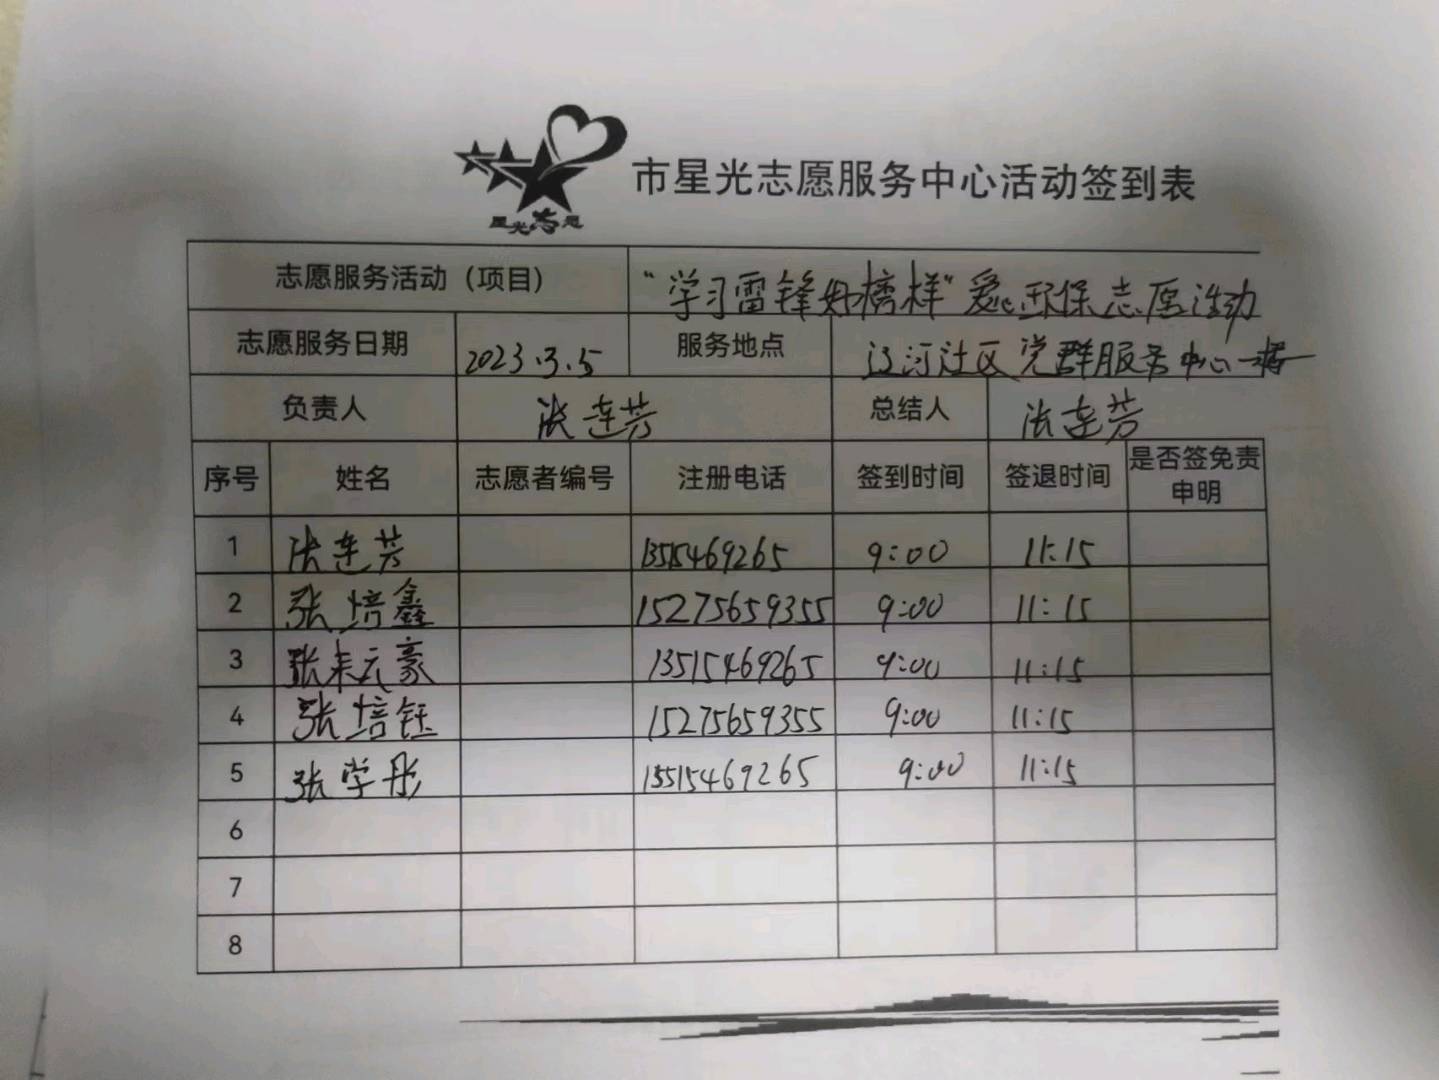 星光志愿
市星光志愿服务中心活动签到表
志愿服务活动（项目） “学习雷锋好榜样”爱心环保志愿活动
志愿服务日期 2023.3.5 服务地点 辽河社区党群服务中心一楼
负责人 张莲芳 总结人 张莲芳
序号 姓名 志愿者编号 注册电话 签到时间 签退时间 是否签免责申明
1 张莲芳 9:00 11:15
2 张培鑫 15275659355 9:00 11:15
3 张耒云豪 13515469265 9:00 11:15
4 张培钰 15275659355 9:00 11:15
5 张学彤 13515469265 9:00 11:15
6
7
8